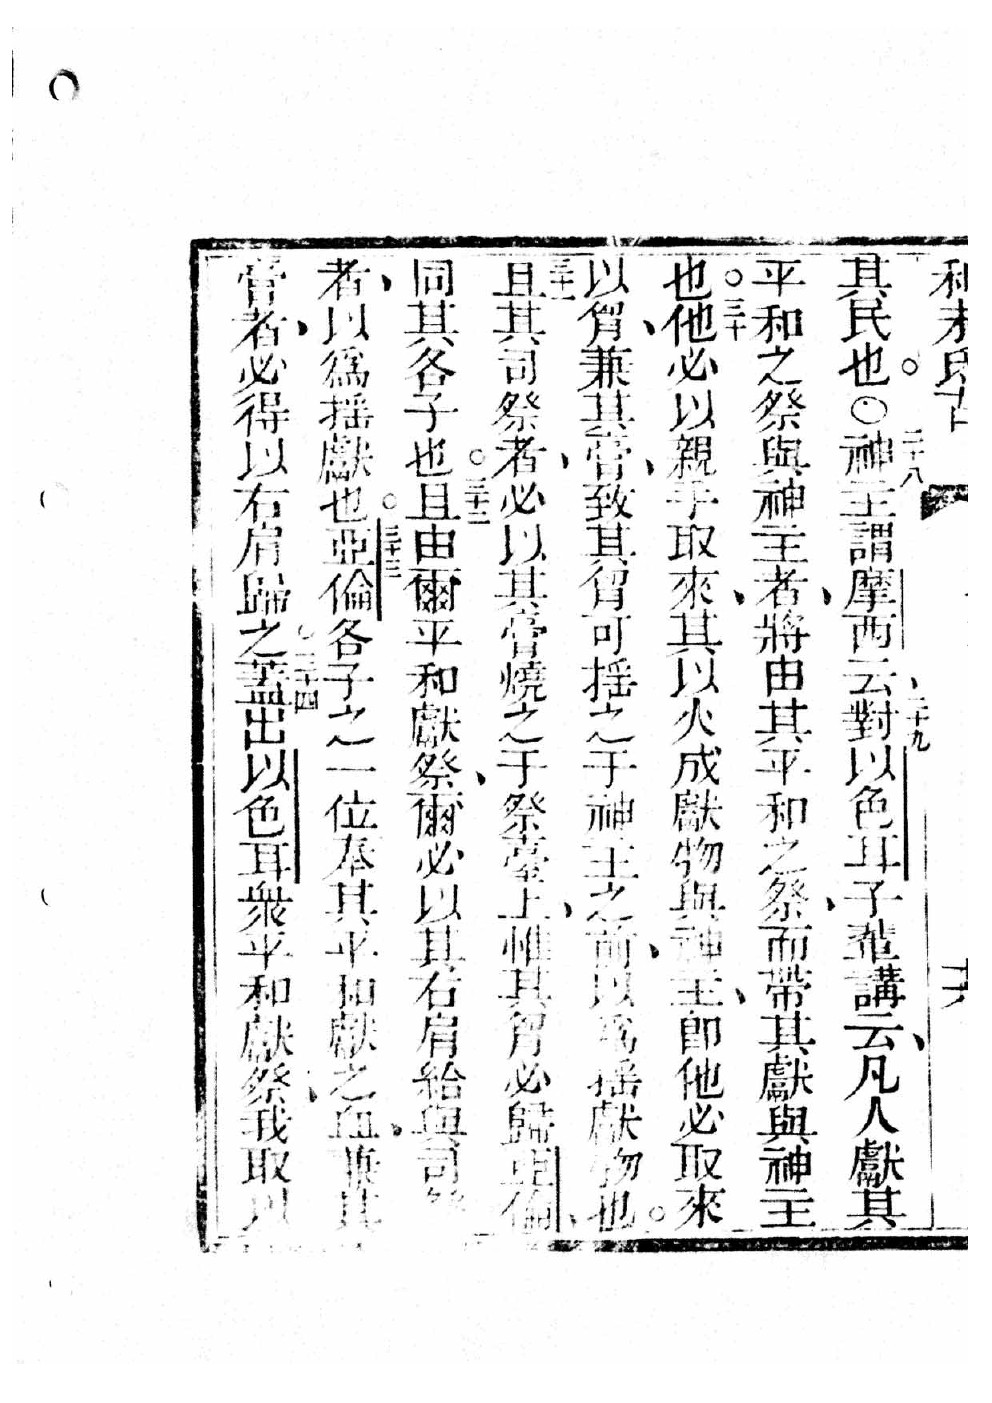 利未氏古
其民也。○二十八神主謂摩西云、二十九對以色耳子輩講云、凡人獻其
平和之祭與神主者、將由其平和之祭、而帶其獻與神主
也。三十他必以親手取來、其以火成獻物與神主、即他必取來
以胷、兼其膏、致其胷可搖之于神主之前、以爲搖獻物也。
三十一且其司祭者、必以其膏燒之于祭臺上、惟其胷必歸亞倫、
同其各子也。三十二且由爾平和獻祭、爾必以其右肩給與司
者、以爲搖獻也。三十三亞倫各子之一位奉其平和獻之血、兼其
膏者、必得以右肩歸之。三十四蓋出以色耳衆平和獻祭、我取以